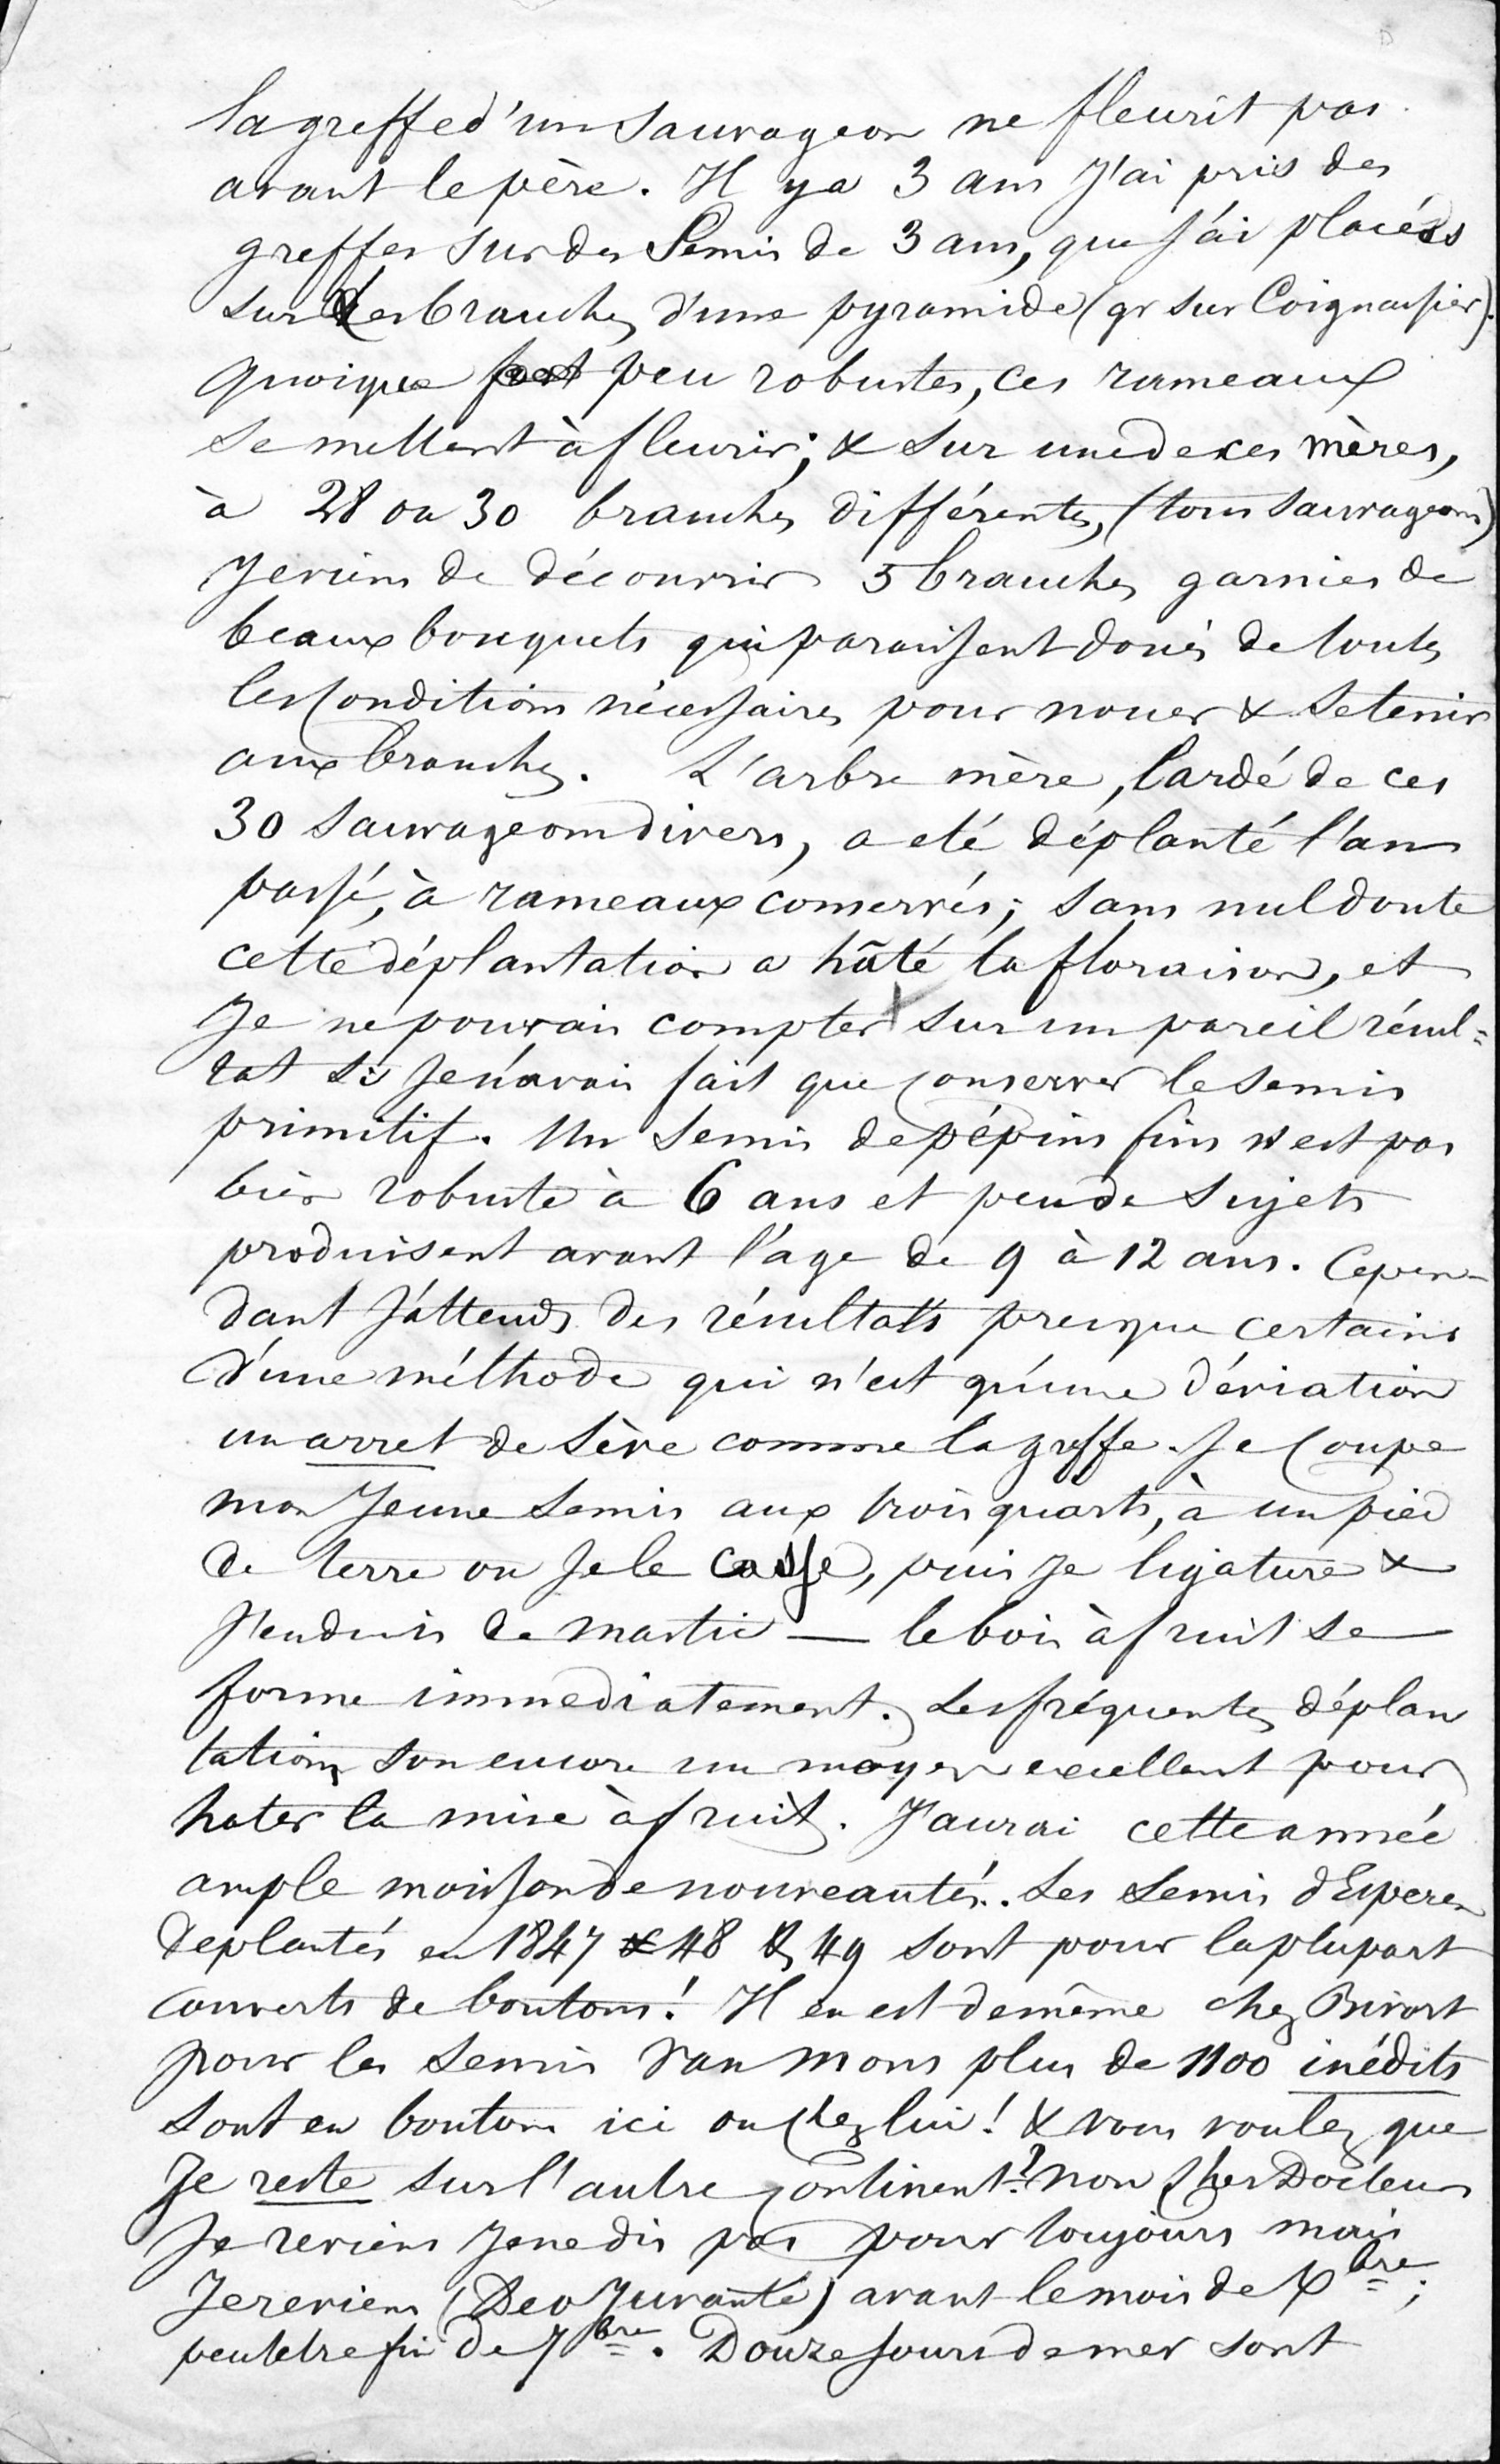 la greffe d'un Sauvageon ne fleurit pas
avant le père. Il y a 3 ans J'ai pris des
greffes sur des Semis de 3 ans, que J'ai placées
sur les branches d'une pyramide (gr sur Coignassier).
quoique peu robustes, ces rameaux
se mettent à fleurir; & sur une de ces mères,
à 28 ou 30 branches différentes, (tous sauvageons)
Je viens de découvrir 5 branches garnies de
beaux bouquets qui paraissent doués de toutes
les Conditions nécessaires pour nouer & se tenir
aux branches. L'arbre mère, lardé de ces
30 Sauvageons divers, a eté déplanté l'an
passé, à rameaux conservés; sans nul doute
cette déplantation a hâté la floraison, et
Je ne pouvais compter sur un pareil résul=
tat si Je n'avais fait que conserver le semis
primitif. Un Semis de pépins fins n'est pas
bien robuste à 6 ans et peu de sujets
produisent avant l'age de 9 à 12 ans. Cepen-
dant J'attends des résultats presque certains
d'une méthode qui n'est qu'une déviation
un arret de Sève comme la greffe. Je Coupe
mon Jeune Semis aux trois quarts, à un pied
de terre ou Je le Casse, puis Je ligature &
J'enduis de mastic — le bois à fruit se
forme immediatement. Les fréquentes déplan
tations son encore un moyen excellent pour
hater la mise à fruit. J'aurai cette année
ample moisson de nouveautés. Les Semis d'Esperen
deplantés en 1847 & 48 & 49 sont pour la plupart
couverts de boutons! Il en est de même chez Bivort
pour les Semis Van Mons plus de 1100 inédits
sont en boutons ici ou chez lui! & vous voulez que
Je reste sur l'autre Continent? Non Cher Docteur
Je reviens Je ne dis pas pour toujours mais
Je reviens (Deo Juvante) avant le mois de Xbre;
peutetre fin de 7bre. Douze Jours de mer sont